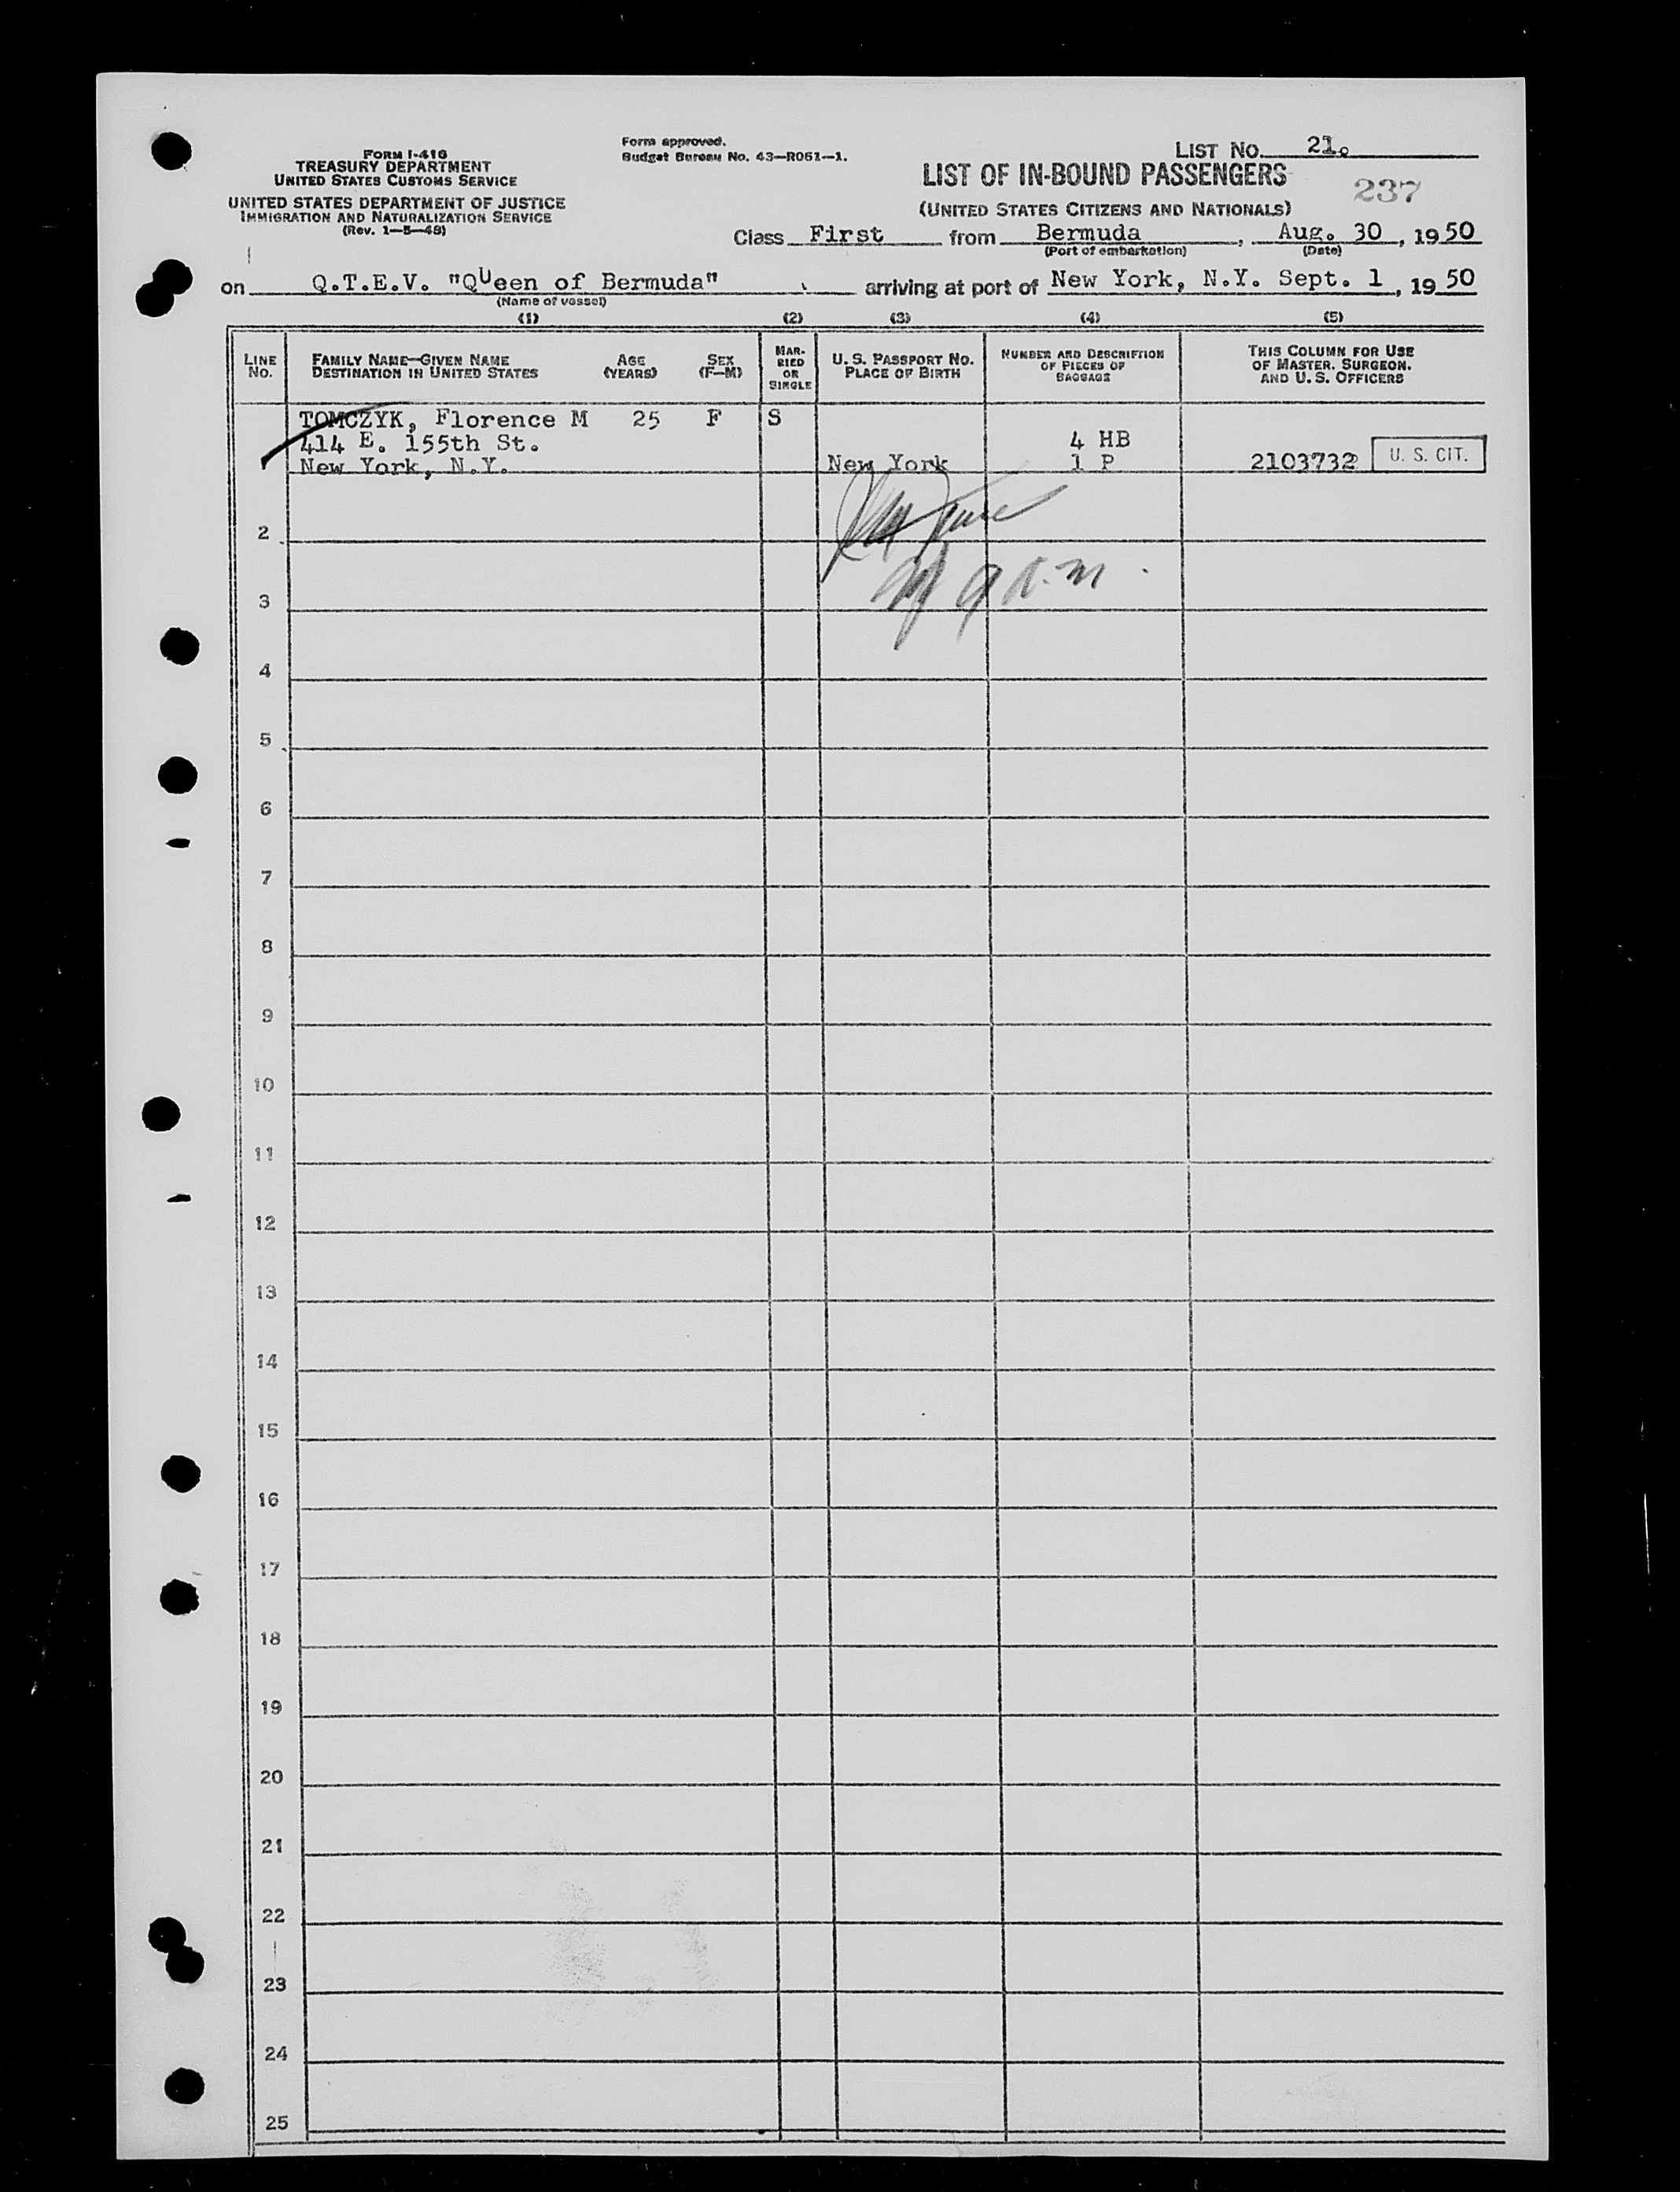 FORM I-416
TREASURY DEPARTMENT
UNITED STATES CUSTOMS SERVICE
UNITED STATES DEPARTMENT OF JUSTICE
IMMIGRATION AND NATURALIZATION SERVICE
(Rev. 1-5-48)
Form approved.
Budget Bureau No. 43-R061-1.
LIST NO. 21.
LIST OF IN-BOUND PASSENGERS
237
(UNITED STATES CITIZENS AND NATIONALS)
Class First from Bermuda, Aug. 30, 1950
(Port of embarkation) (Date)
on Q.T.E.V. "QUeen of Bermuda" arriving at port of New York, N.Y. Sept. 1, 1950
(Name of vessel)
(1) (2) (3) (4) (5)
LINE NO.
FAMILY NAME—GIVEN NAME
DESTINATION IN UNITED STATES
AGE
(YEARS)
SEX
(F—M)
MAR-
RIED
OR
SINGLE
U. S. PASSPORT NO.
PLACE OF BIRTH
NUMBER AND DESCRIPTION
OF PIECES OF
BAGGAGE
THIS COLUMN FOR USE
OF MASTER, SURGEON,
AND U. S. OFFICERS
TOMCZYK, Florence M 25 F S
414 E. 155th St. 4 HB
New York, N.Y. New York 1 P 2103732 U. S. CIT.
2
3
4
5
6
7
8
9
10
11
12
13
14
15
16
17
18
19
20
21
22
23
24
25